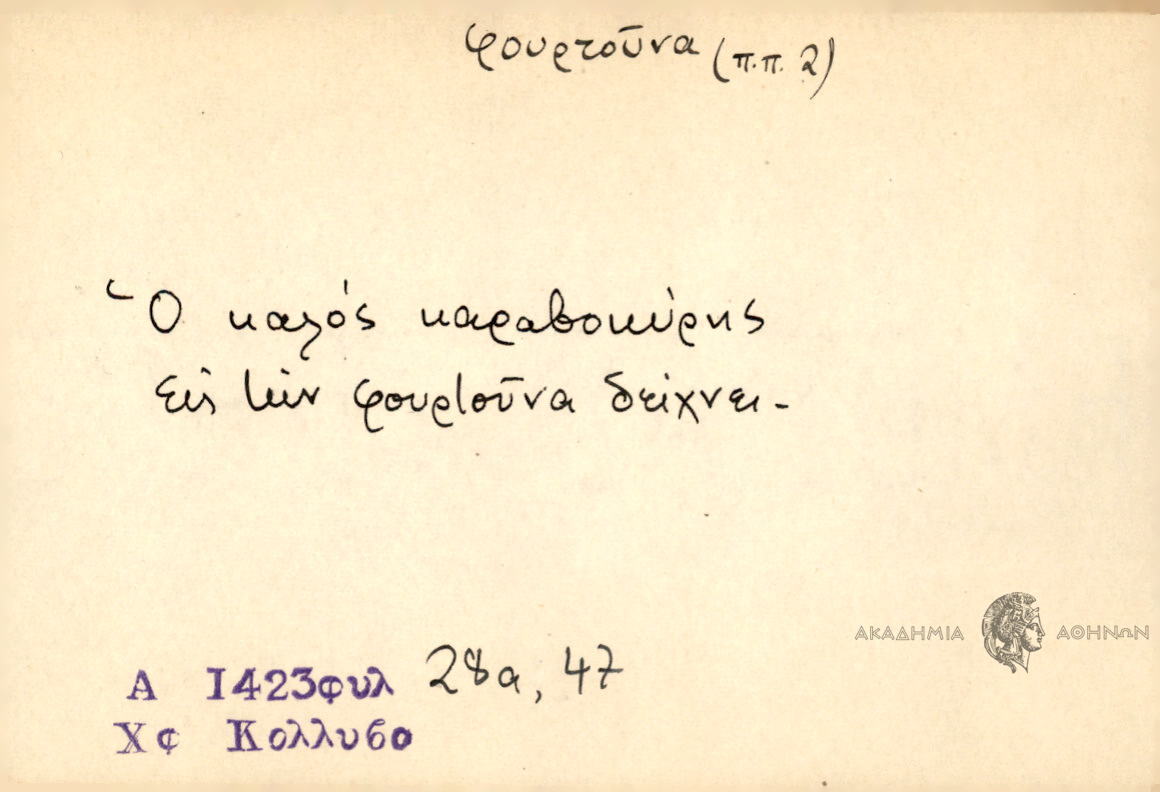 φουρτοῦνα (π.π. 2)
Ὁ καλός καραβοκύρης
εἰς τήν φουρτοῦνα δείχνει.
ΑΚΑΔΗΜΙΑ ΑΘΗΝΩΝ
Α 1423φυλ 28α, 47
Χφ Κολλυβο